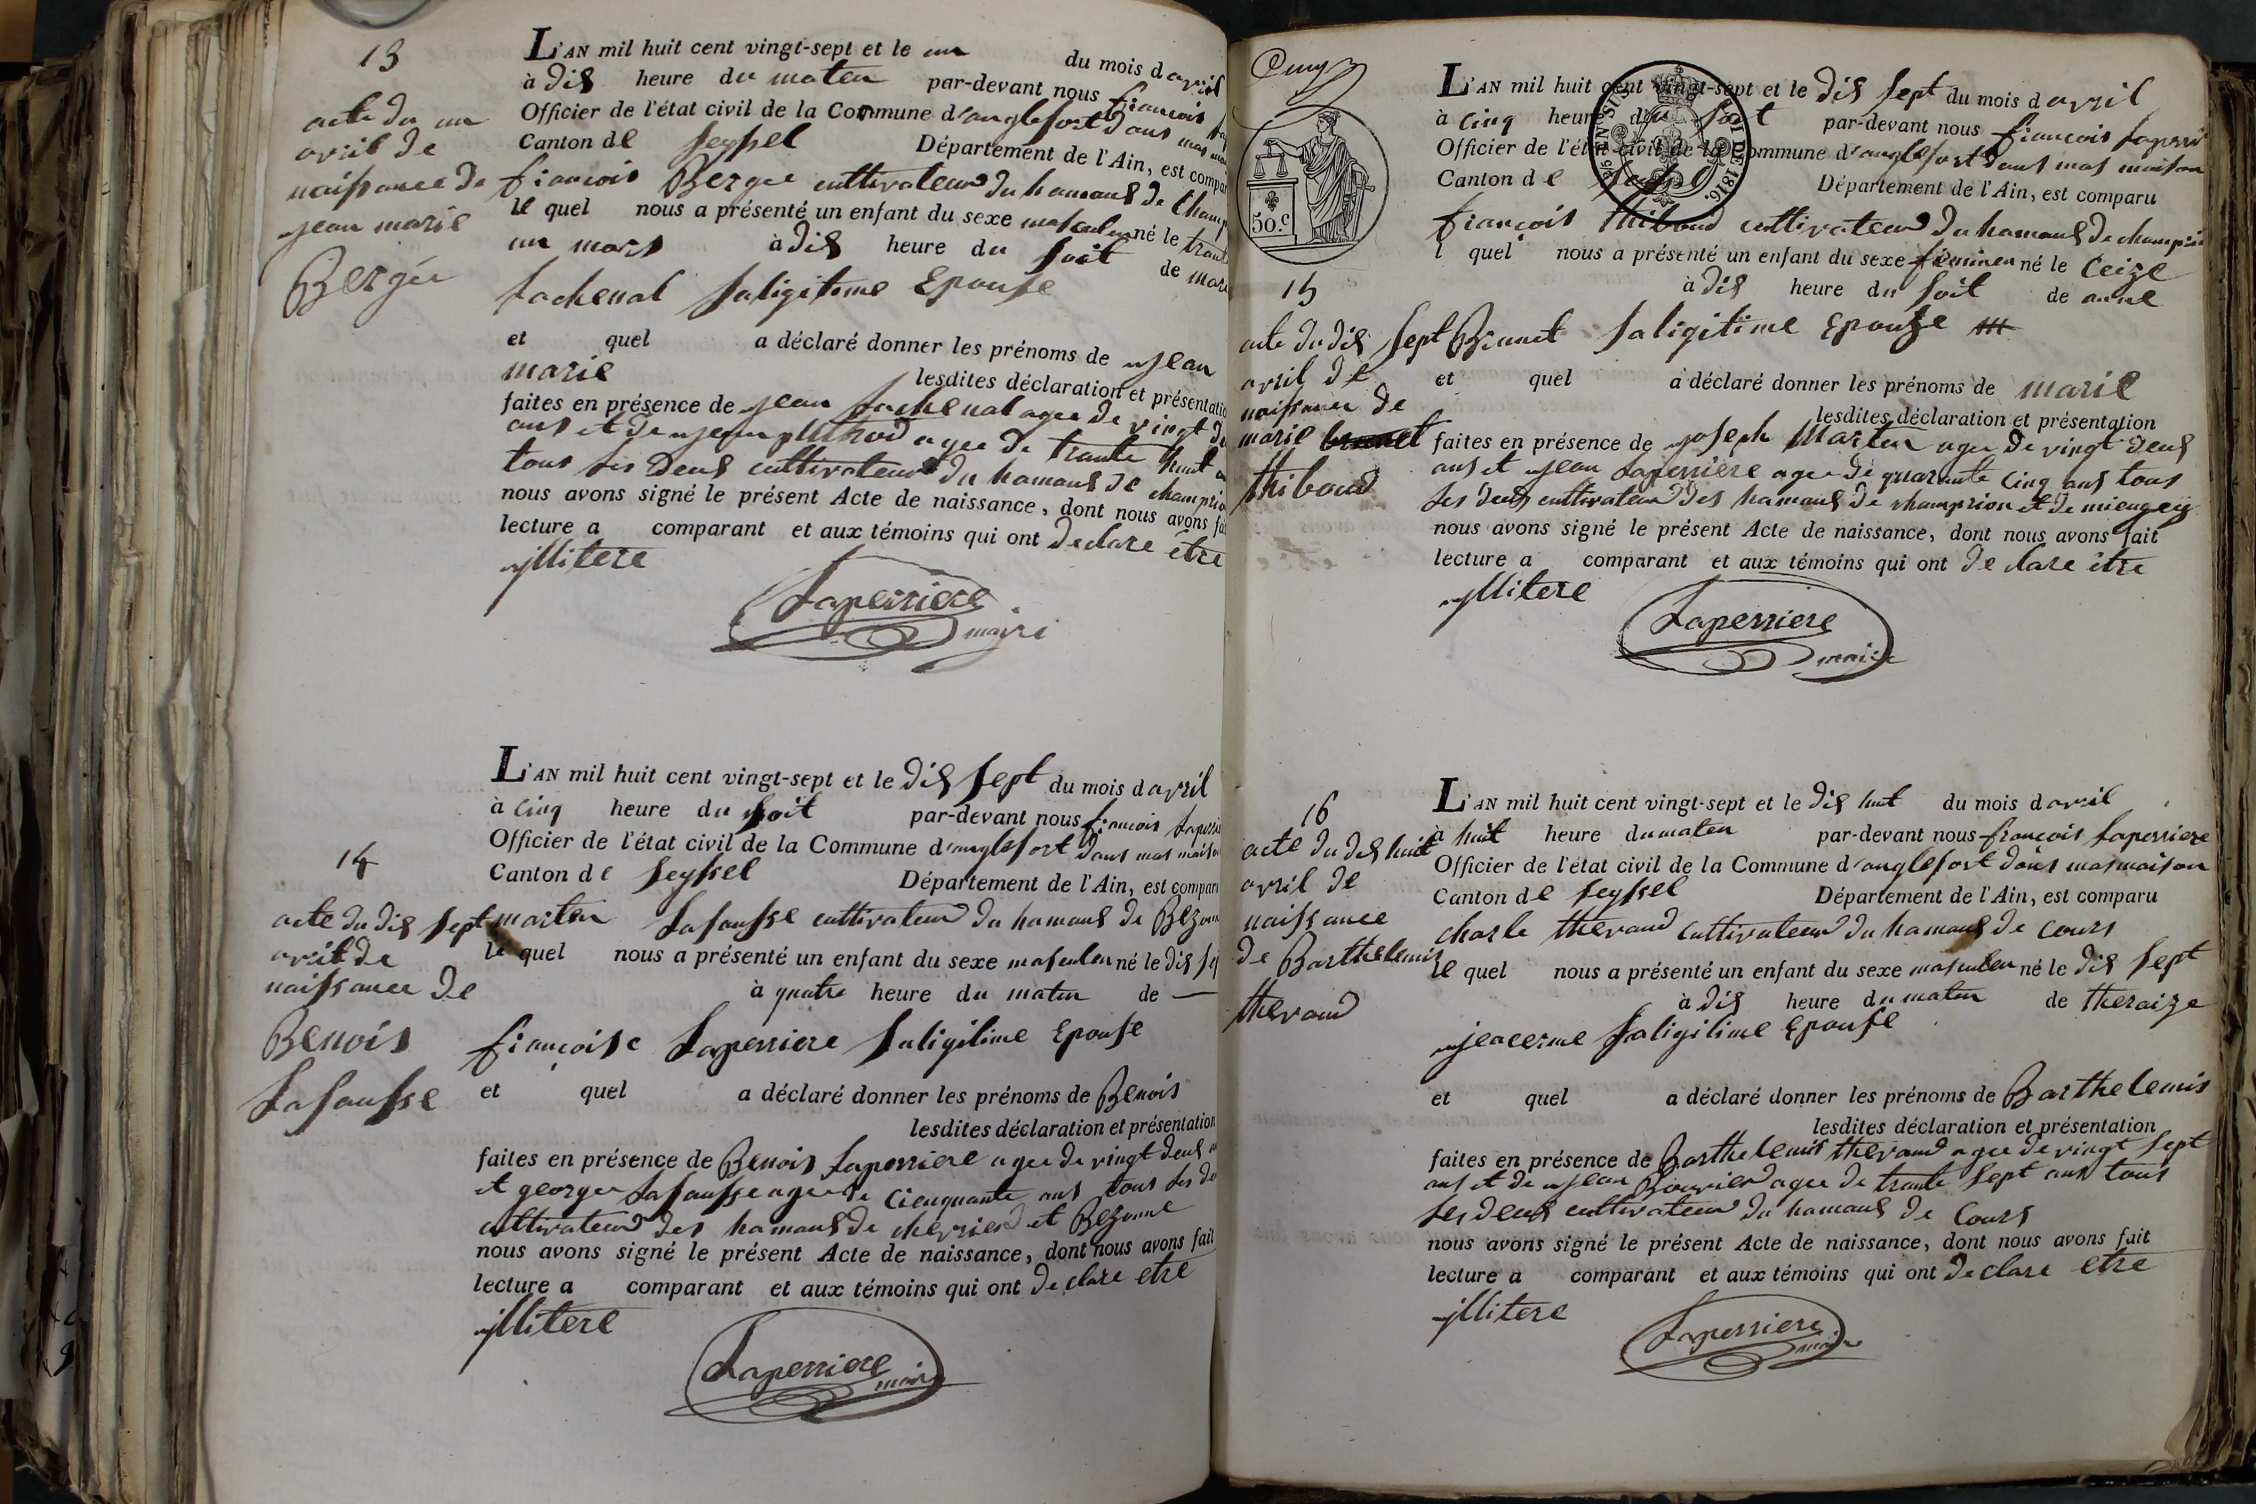 13
acte du un
avril de
naissance de
jean marie
Bergée
L'AN mil huit cent vingt-sept et le un du mois d avril
à dis heure du maten par-devant nous françois
Officier de l'état civil de la Commune d'anglefort dans mas
Canton de Seyssel Département de l'Ain, est
françois Bergee cultivateur du hamaus de
le quel nous a présenté un enfant du sexe masculen né le
un mars à dis heure du soit de
Lachenal saligitime Epouse
et quel a déclaré donner les prénoms de jean
marie lesdites déclaration et
faites en présence de jean Lachenal agee de vingt
ans et de jean agee de trante huit
tous les deus cultivateur du hamaus de
nous avons signé le présent Acte de naissance, dont nous avons
lecture a comparant et aux témoins qui ont declare être
jllitere
Laperriere
maire
14
acte du dis sept
avril de
naissance de
Benois
Lafausse
L'AN mil huit cent vingt-sept et le dis sept du mois d avril
à cinq heure du soit par-devant nous françois
Officier de l'état civil de la Commune d'anglefort dans mas
Canton de Seyssel Département de l'Ain, est
marten Lafausse cultivateur du hamaus de
le quel nous a présenté un enfant du sexe masculen né le dis
à quatre heure du maten de —
françoise Laperriere saligitime Epouse
et quel a déclaré donner les prénoms de Benois
lesdites déclaration et présentation
faites en présence de Benois Laperriere agee de vingt deus
et george Lafausse agee de cienquante ans tous les
cultivateur des hamaus de et Bezonne
nous avons signé le présent Acte de naissance, dont nous avons fait
lecture a comparant et aux témoins qui ont de clare etre
jllitere
Laperriere
maire
50.c
ROI DE 1816.
15
acte du dis sept
avril de
naissance de
marie brunet
thiboud
L'AN mil huit cent vingt-sept et le dis sept du mois d avril
à cinq heure du soit par-devant nous françois
Officier de l'état civil de la Commune d'anglefort dans mas maison
Canton de Département de l'Ain, est comparu
françois thiboud cultivateur du hamaus de
l quel nous a présenté un enfant du sexe féminen né le ceize
à dis heure du soit de anne
Brunet saligitime Epouse
et quel a déclaré donner les prénoms de marie
lesdites déclaration et présentation
faites en présence de joseph Marten agee de vingt deus
ans et jean Laperriere agee de quarante cinq ans tous
les deus cultivateur des hamaus de champrion et de miengey
nous avons signé le présent Acte de naissance, dont nous avons fait
lecture a comparant et aux témoins qui ont de clare être
jllitere
Laperriere
maire
16
acte du dis huit
avril de
naissance
de Barthelemis
thevaud
L'AN mil huit cent vingt-sept et le dis huit du mois d avril
à huit heure du maten par-devant nous françois Laperriere
Officier de l'état civil de la Commune d'anglefort dans mas maison
Canton de Seyssel Département de l'Ain, est comparu
charle thevaud cultivateur du hamaus de cours
le quel nous a présenté un enfant du sexe masculen né le dis sept
à dis heure du maten de theraize
jeacerme saligitime Epouse
et quel a déclaré donner les prénoms de Barthelemis
lesdites déclaration et présentation
faites en présence de Barthelemis thevaud agee de vingt sept
ans et de jean Bouvier agee de trante sept ans tous
les deus cultivateur du hamaus de Cours
nous avons signé le présent Acte de naissance, dont nous avons fait
lecture a comparant et aux témoins qui ont declare etre
jllitere
Laperriere
maire